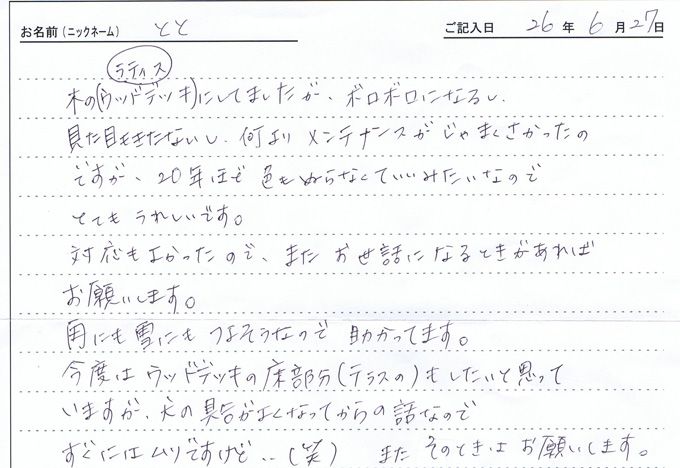 お名前（ニックネーム） とと ご記入日 26年 6月27日
ラティス
木の(ウッドデッキ)にしてましたが、ボロボロになるし、
見た目もきたないし、何より メンテナンスがじゃまくさかったの
ですが、20年ほど 色もぬらなくていいみたいなので
とても うれしいです。
対応もよかったので、また お世話に なるときがあれば
お願いします。
雨にも雪にも つよそうなので 助かってます。
今度は ウッドデッキの床部分(テラスの)もしたいと思って
いますが、犬の具合がよくなってからの 話なので
すぐにはムリですけど‥(笑) また そのときは お願いします。